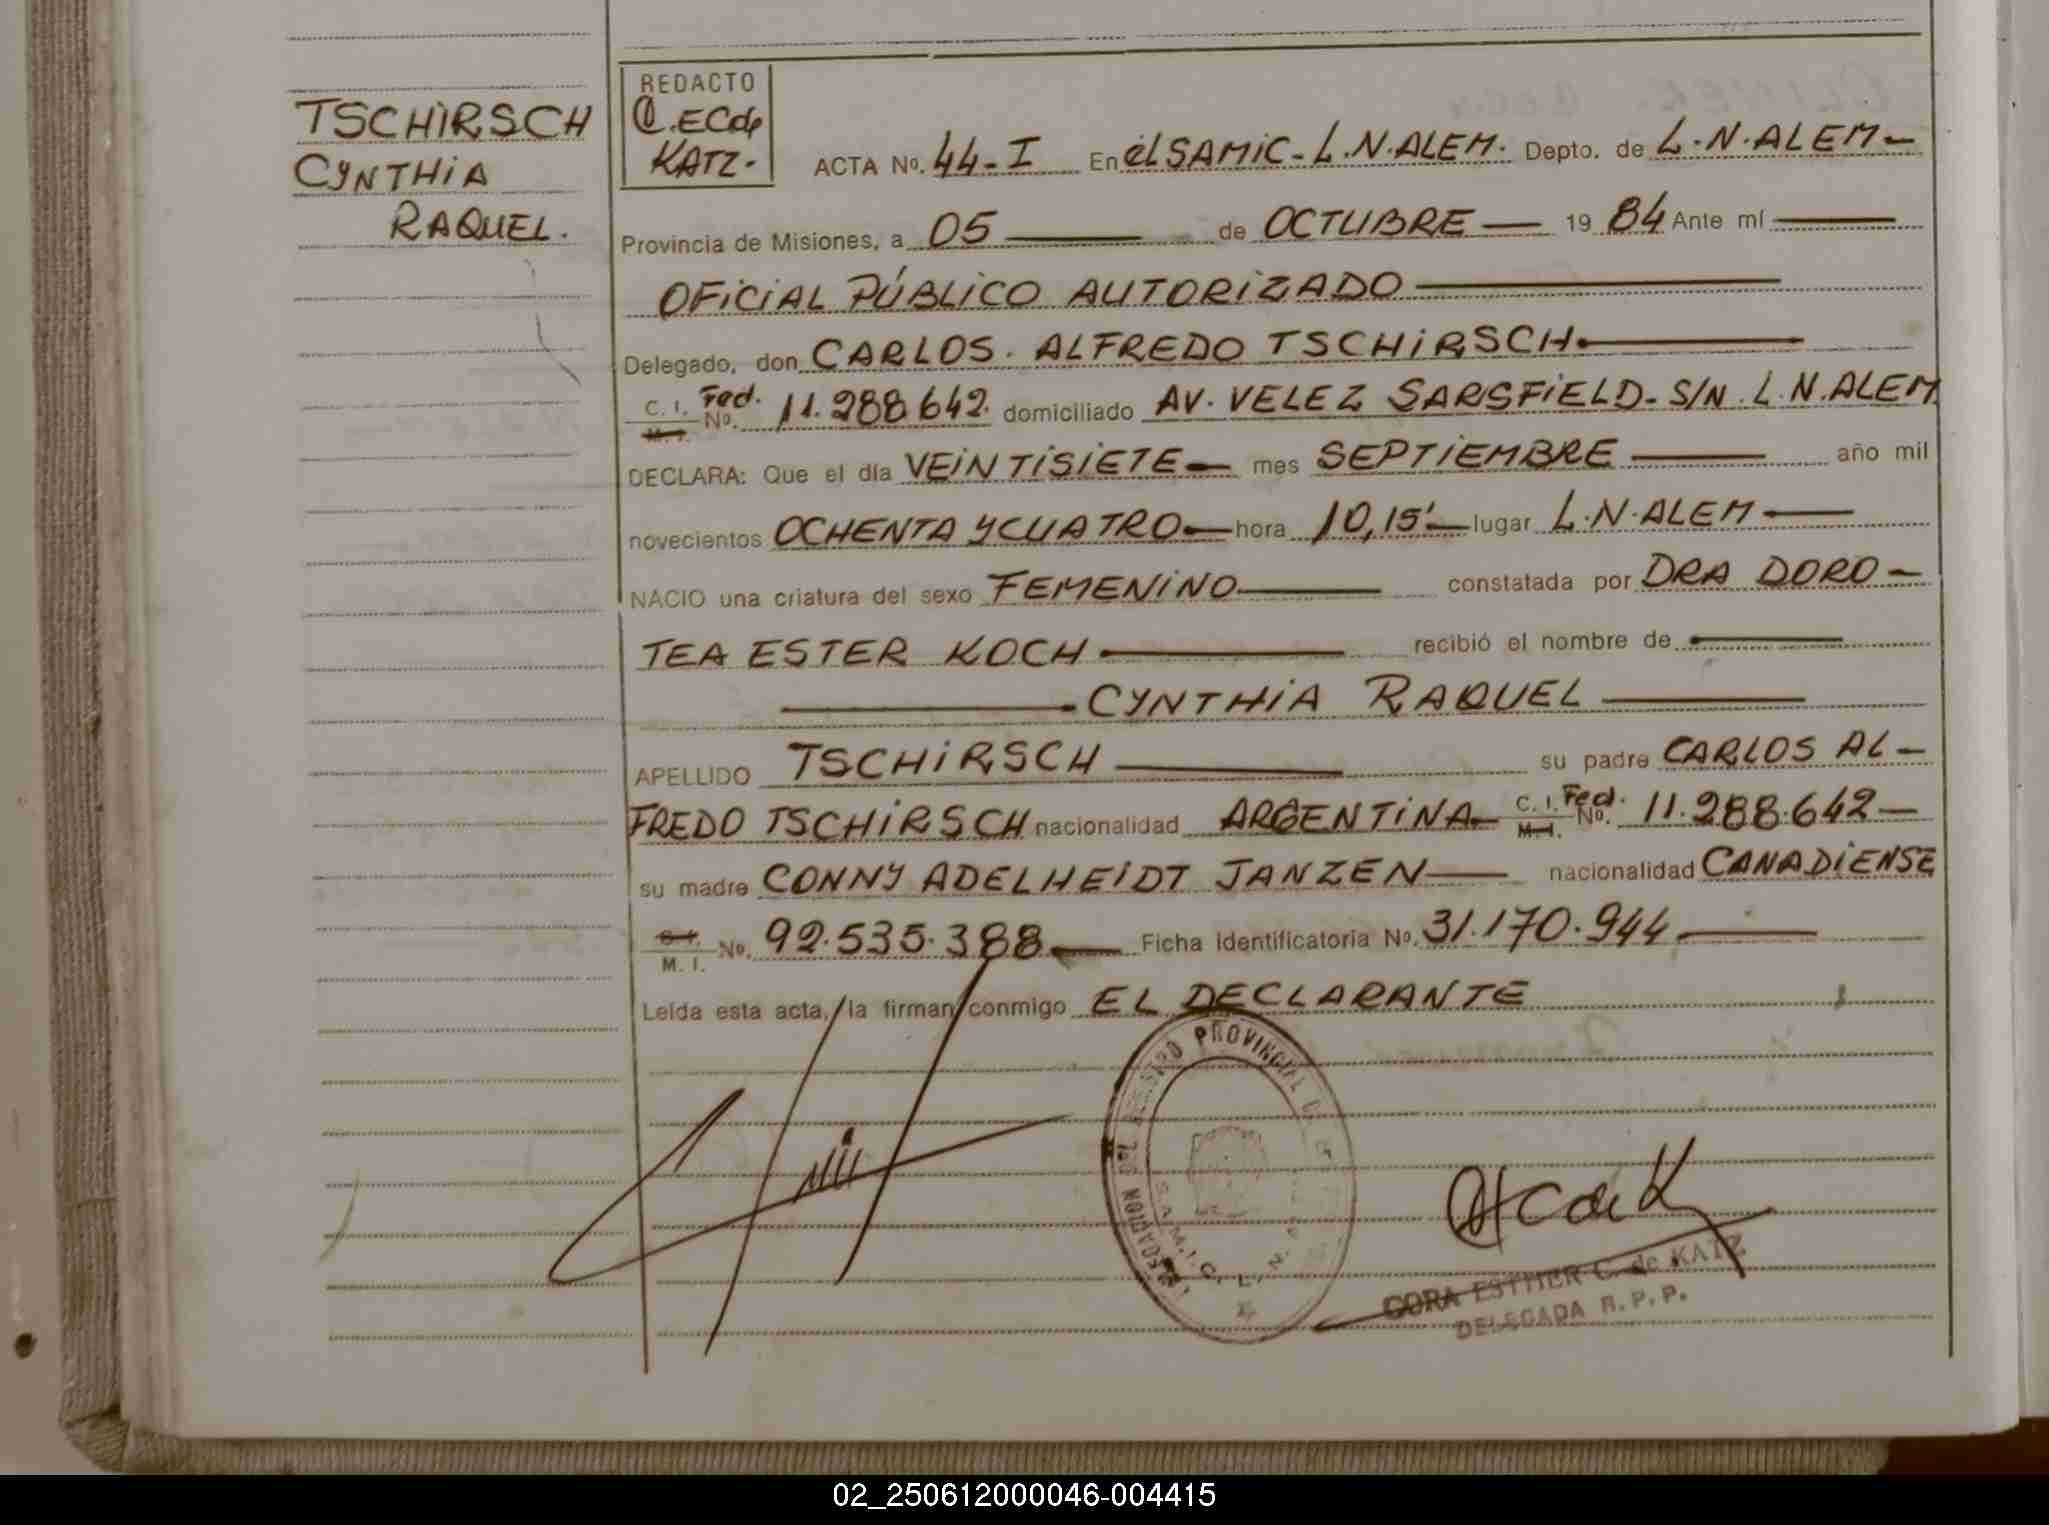 TSCHIRSCH
CYNTHIA
RAQUEL.
REDACTO
C.EC de
KATZ.-
ACTA Nº. 44-I En el SAMIC-L.N.ALEM. Depto. de L.N.ALEM-
Provincia de Misiones, a 05 de OCTUBRE 19 84 Ante mí
OFICIAL PÚBLICO AUTORIZADO
Delegado, don CARLOS. ALFREDO TSCHIRSCH.
C. I. Fed.
M. I. Nº. 11.288.642. domiciliado AV. VELEZ SARSFIELD- S/N. L.N.ALEM
DECLARA: Que el día VEINTISIETE- mes SEPTIEMBRE año mil
novecientos OCHENTA Y CUATRO- hora 10,15'- lugar L.N.ALEM
NACIO una criatura del sexo FEMENINO constatada por DRA DORO-
TEA ESTER KOCH recibió el nombre de
CYNTHIA RAQUEL
APELLIDO TSCHIRSCH su padre CARLOS AL-
FREDO TSCHIRSCH nacionalidad ARGENTINA- C. I. Fed. M. I. Nº. 11.288.642-
su madre CONNY ADELHEIDT JANZEN nacionalidad CANADIENSE
C. I.
M. I. Nº. 92.535.388 Ficha identificatoria Nº. 31.170.944
Leída esta acta, la firman conmigo EL DECLARANTE
DELEGACION DEL REGISTRO PROVINCIAL DE
S.A.M.I.C. L. N.
CORA ESTHER C. de KATZ
DELEGADA R.P.P.
02_250612000046-004415